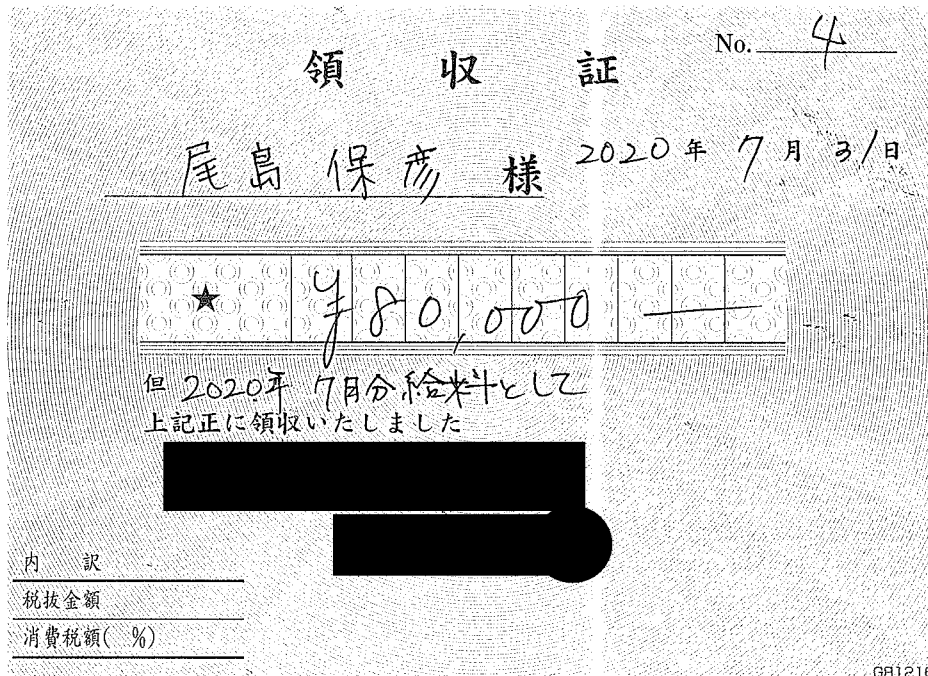 No. 4
領収証
尾島 保彦 様
2020年 7月 31日
★ ¥80,000—
但 2020年 7月分給料として
上記正に領収いたしました
内 訳
税抜金額
消費税額( %)
GB1216